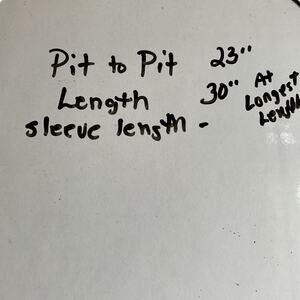 Pit to Pit 23"
Length 30" At Longest Length
sleeve length -